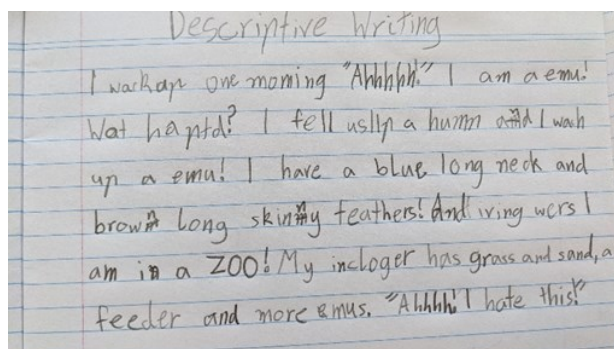 Descriptive Writing
I wackap one morning "Ahhhhh!" I am a emu!
Wat haptd? I fell usllp a humn and I wach
up a emu! I have a blue long neck and
brown long skinny feathers! And iving wers I
am in a ZOO! My incloger has grass and sand, a
feeder and more emus. "Ahhhh! I hate this!"